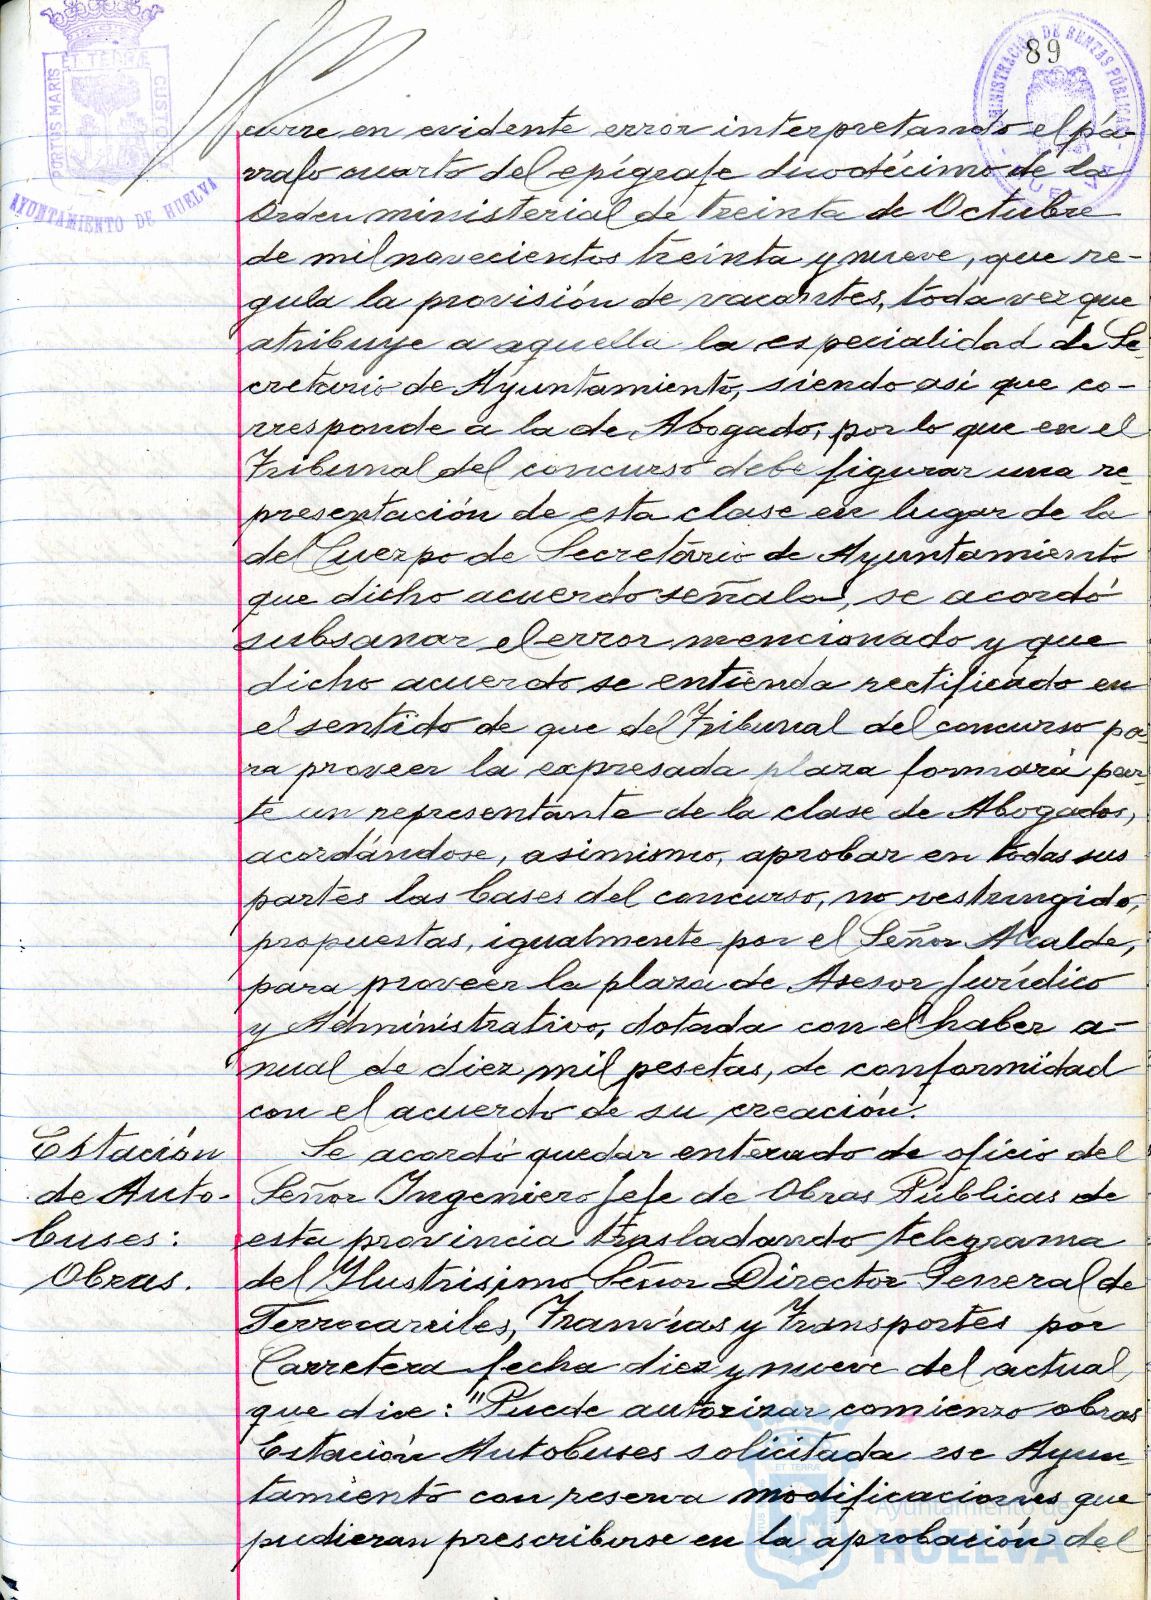 89
PORTUS MARIS
ET TERRÆ
CUSTO
AYUNTAMIENTO DE HUELVA
ADMINISTRACIÓN DE RENTAS PÚBLICAS
HUELVA
curre en evidente error interpretando el pá-
rrafo cuarto del epígrafe duodécimo de la
Orden ministerial de treinta de Octubre
de mil novecientos treinta y nueve, que re-
gula la provisión de vacantes, toda vez que
atribuye a aquella la especialidad de Se-
cretario de Ayuntamiento, siendo así que co-
rresponde a la de Abogado, por lo que en el
Tribunal del concurso debe figurar una re-
presentación de esta clase en lugar de la
del Cuerpo de Secretario de Ayuntamiento
que dicho acuerdo señala, se acordó
subsanar el error mencionado y que
dicho acuerdo se entienda rectificado en
el sentido de que del Tribunal del concurso pa-
ra proveer la expresada plaza formará par-
te un representante de la clase de Abogados,
acordándose, asimismo, aprobar en todas sus
partes las bases del concurso, no restringido,
propuestas, igualmente por el Señor Alcalde,
para proveer la plaza de Asesor Jurídico
y Administrativo, dotada con el haber a-
nual de diez mil pesetas, de conformidad
con el acuerdo de su creación.
Estación
de Auto-
buses:
Obras.
Se acordó quedar enterado de oficio del
Señor Ingeniero Jefe de Obras Públicas de
esta provincia trasladando telegrama
del Ilustrísimo Señor Director General de
Ferrocarriles, Tranvías y Transportes por
Carretera fecha diez y nueve del actual,
que dice: "Puede autorizar comienzo obras
Estación Autobuses solicitada ese Ayun-
tamiento con reserva modificaciones que
pudieran prescribirse en la aprobación del
Ayuntamiento de
HUELVA